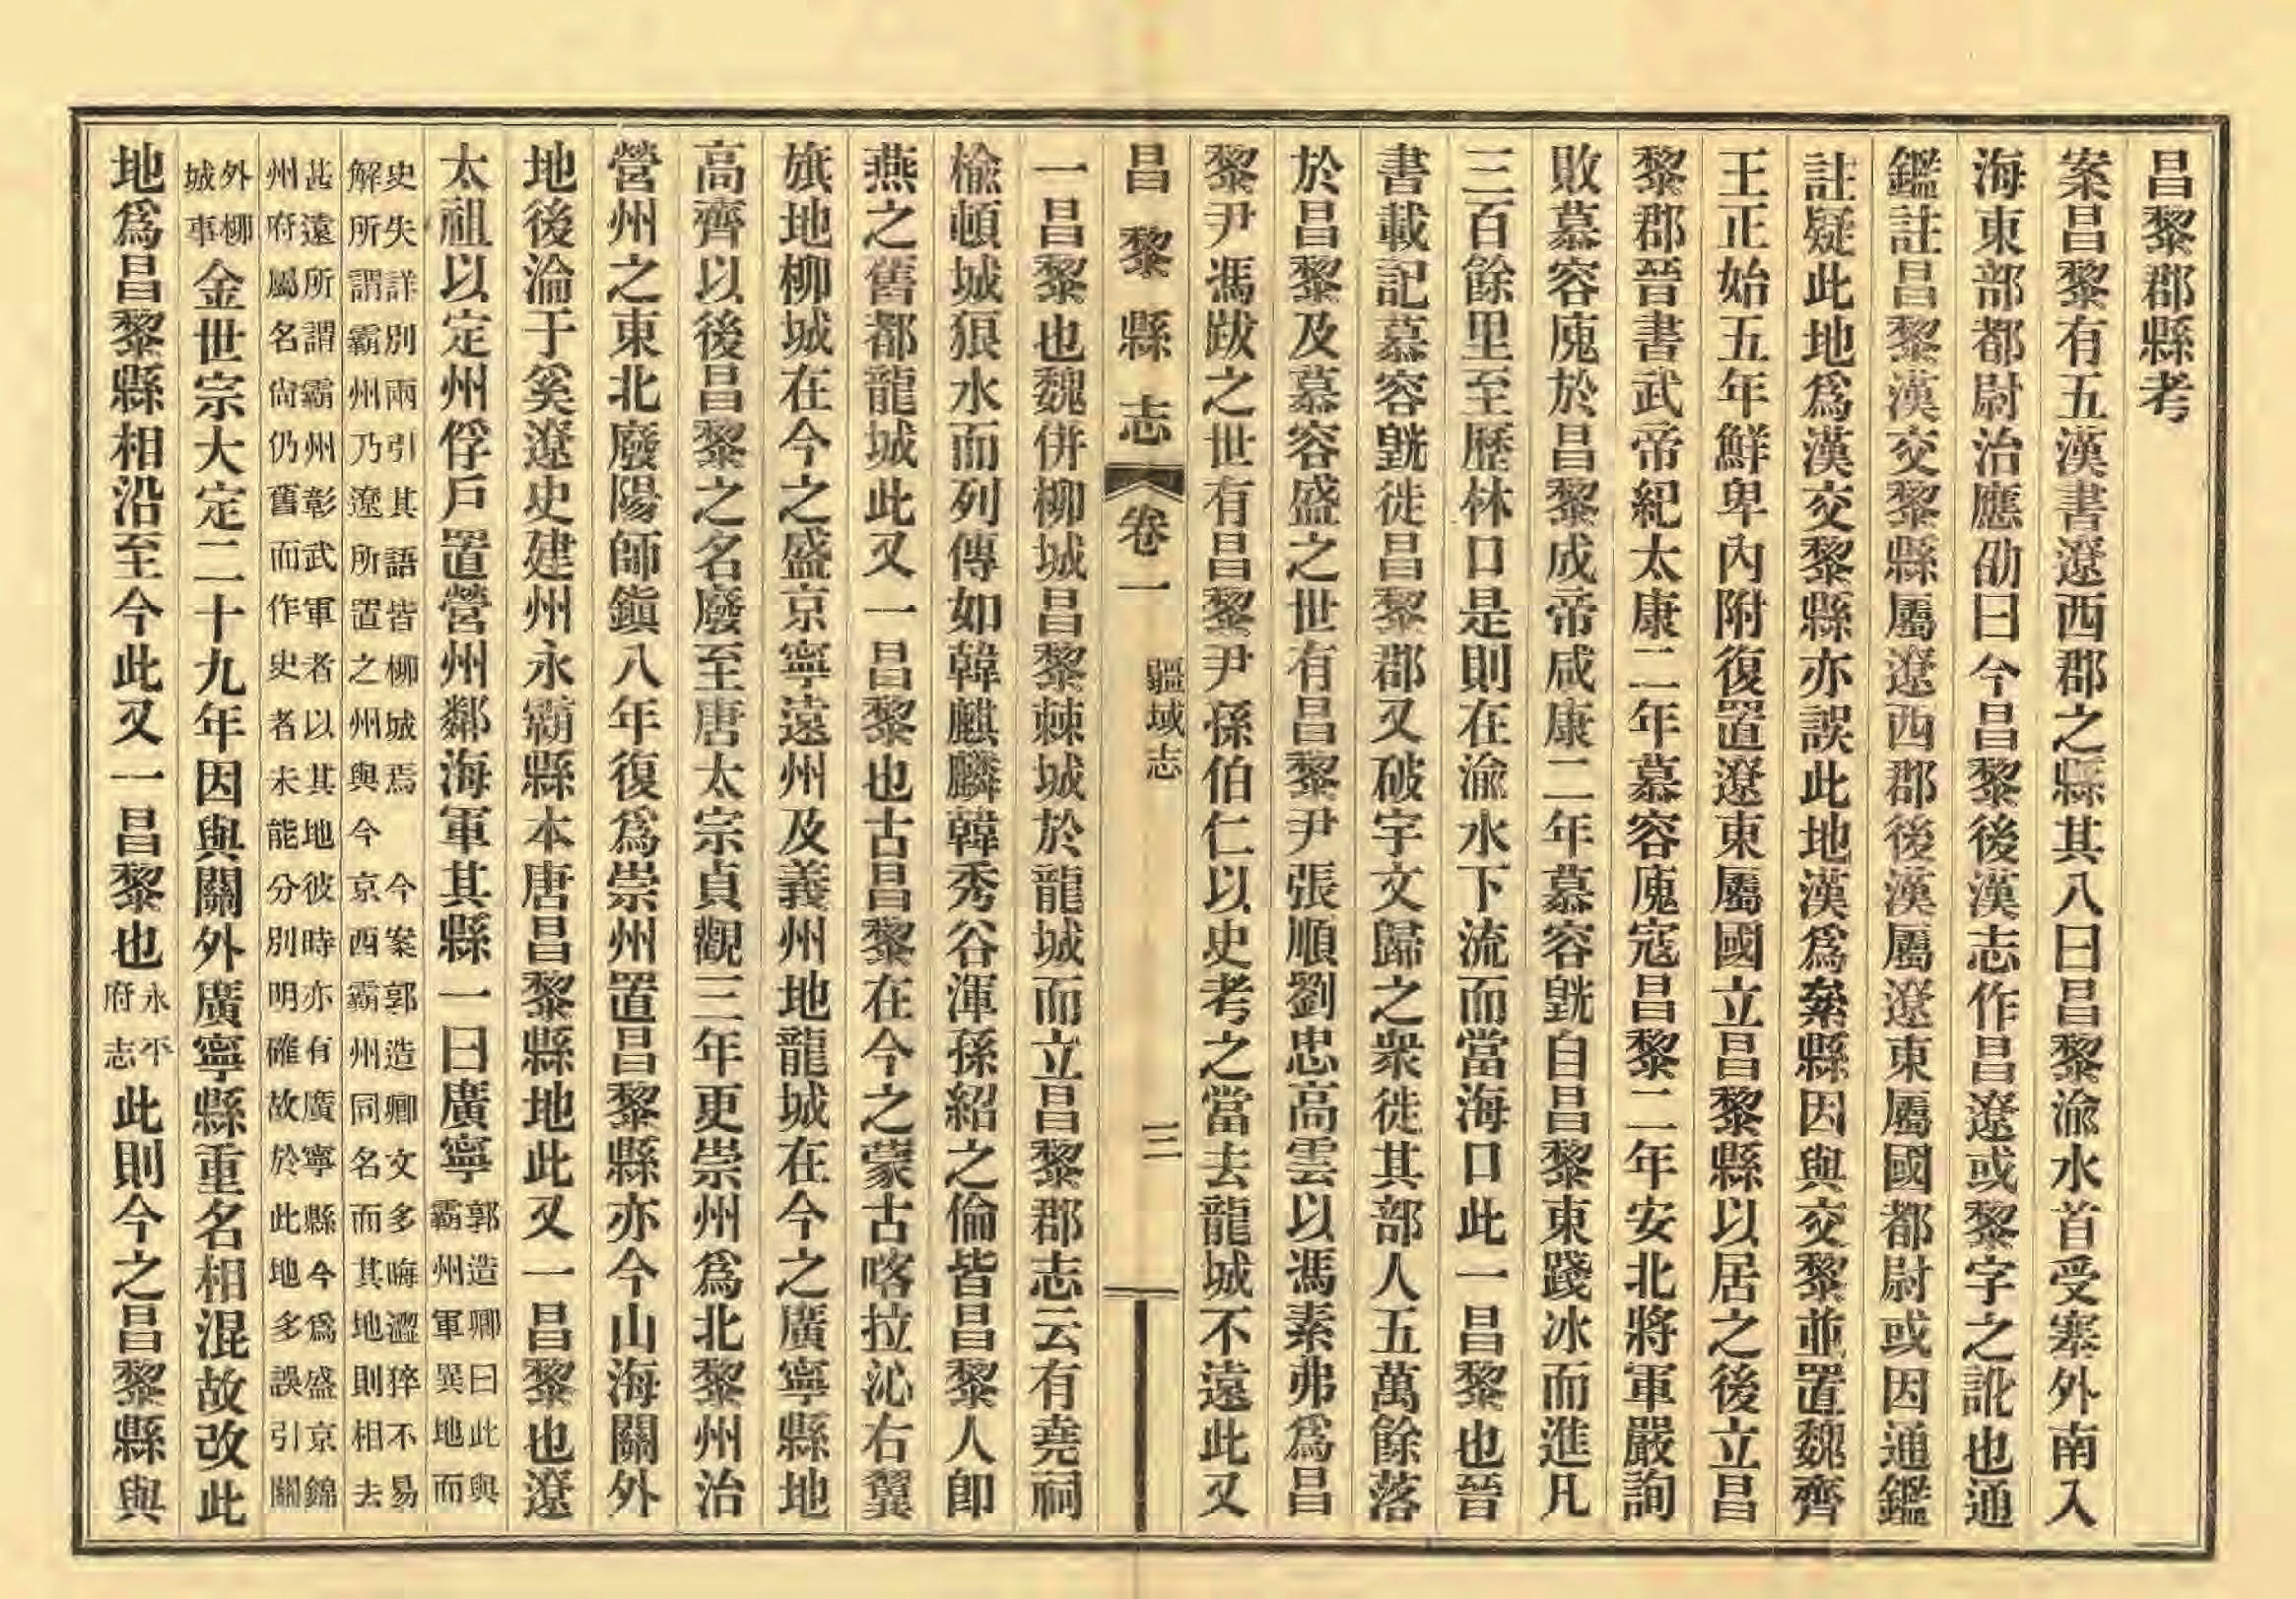 昌黎郡縣考
案昌黎有五漢書遼西郡之縣其八曰昌黎渝水首受塞外南入
海東部都尉治應劭曰今昌黎後漢志作昌遼或黎字之訛也通
鑑註昌黎漢交黎縣屬遼西郡後漢屬遼東屬國都尉或因通鑑
註疑此地爲漢交黎縣亦誤此地漢爲絫縣因與交黎並置魏齊
王正始五年鮮卑內附復置遼東屬國立昌黎縣以居之後立昌
黎郡晉書武帝紀太康二年慕容廆寇昌黎二年安北將軍嚴詢
敗慕容廆於昌黎成帝咸康二年慕容皝自昌黎東踐冰而進凡
三百餘里至歷林口是則在渝水下流而當海口此一昌黎也晉
書載記慕容皝徙昌黎郡又破宇文歸之衆徙其部人五萬餘落
於昌黎及慕容盛之世有昌黎尹張順劉忠高雲以馮素弗爲昌
黎尹馮跋之世有昌黎尹孫伯仁以史考之當去龍城不遠此又
昌黎縣志 卷一 疆域志 三
一昌黎也魏併柳城昌黎棘城於龍城而立昌黎郡志云有堯祠
榆頓城狼水而列傳如韓麒麟韓秀谷渾孫紹之倫皆昌黎人卽
燕之舊都龍城此又一昌黎也古昌黎在今之蒙古喀拉沁右翼
旗地柳城在今之盛京寧遠州及義州地龍城在今之廣寧縣地
高齊以後昌黎之名廢至唐太宗貞觀三年更崇州爲北黎州治
營州之東北廢陽師鎮八年復爲崇州置昌黎縣亦今山海關外
地後淪于奚遼史建州永霸縣本唐昌黎縣地此又一昌黎也遼
太祖以定州俘戶置營州鄰海軍其縣一曰廣寧郭造卿曰此與
霸州軍異地而
史失詳別兩引其語皆柳城焉 今案郭造卿文多晦澀猝不易
解所謂霸州乃遼所置之州與今京西霸州同名而其地則相去
甚遠所謂霸州彰武軍者以其地彼時亦有廣寧縣今爲盛京錦
州府屬名尙仍舊而作史者未能分別明確故於此地多誤引關
外柳
城事金世宗大定二十九年因與關外廣寧縣重名相混故改此
地爲昌黎縣相沿至今此又一昌黎也永平
府志此則今之昌黎縣與